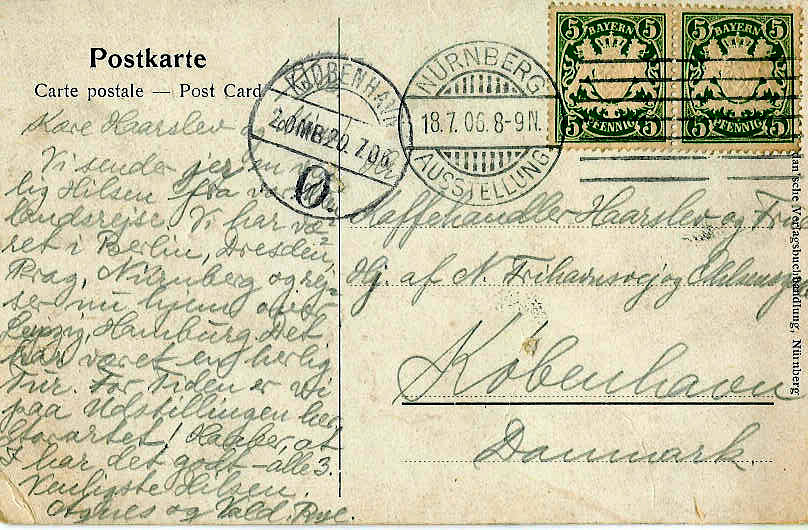 Postkarte
Carte postale — Post Card
KJØBENHAVN
2.OMB 20.7.06
NÜRNBERG
18.7.06.8-9N.
AUSSTELLUNG
5 5
BAYERN
5 PFENNIG 5
5 5
BAYERN
5 PFENNIG 5
Kære Haarslev
Vi sender jer en
lig Hilsen fra vor
landsrejse. Vi har væ-
ret i Berlin, Dresden,
Prag, Nürnberg og rej-
ser nu hjem over
Leipzig, Hamburg. Det
har været en herlig
Tur. For Tiden er vi
paa Udstillingen her.
Storartet! Haaber, at
I har det godt - alle 3.
Venligste Hilsen.
Agnes og Vald. Rye.
Kaffehandler Haarslev og Frue
Hj. af N. Frihavnsvej og
København
Danmark.
dan'sche Verlagsbuchhandlung, Nürnberg